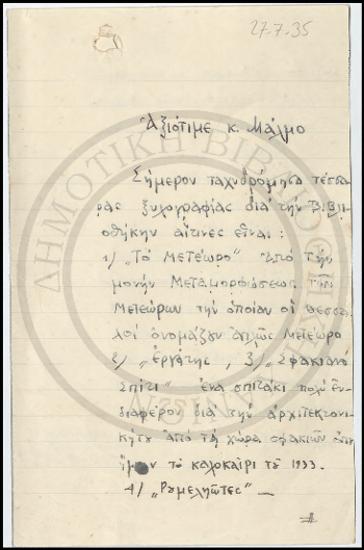 27-7-35
Ἀξιότιμε κ. Μάλμο
Σήμερον ταχυδρόμησα τέσσα
ρας ξυλογραφίας διὰ τὴν Βιβλι
οθήκην αἵτινες εἶναι:
1) „Τὸ Μετέωρο" ἀπὸ τὴν
μονὴν Μεταμορφώσεως τῶν
Μετεώρων τὴν ὁποίαν οἱ θεσσα
λοὶ ὀνομάζουν ἁπλῶς Μετέωρο
2) „Ἐργάτης, 3) „Σφακιανό
Σπίτι" ἕνα σπιτάκι πολὺ ἐν
διαφέρον διὰ τὴν ἀρχιτεκτονι
κήν του ἀπὸ τὰ χώρα σφακιῶν ὅπου
ἤμουν τὸ καλοκαίρι τοῦ 1933.
4) „Ρουμελιῶτες" —
ΔΗΜΟΤΙΚΗ ΒΙΒΛΙΟΘΗΚΗ